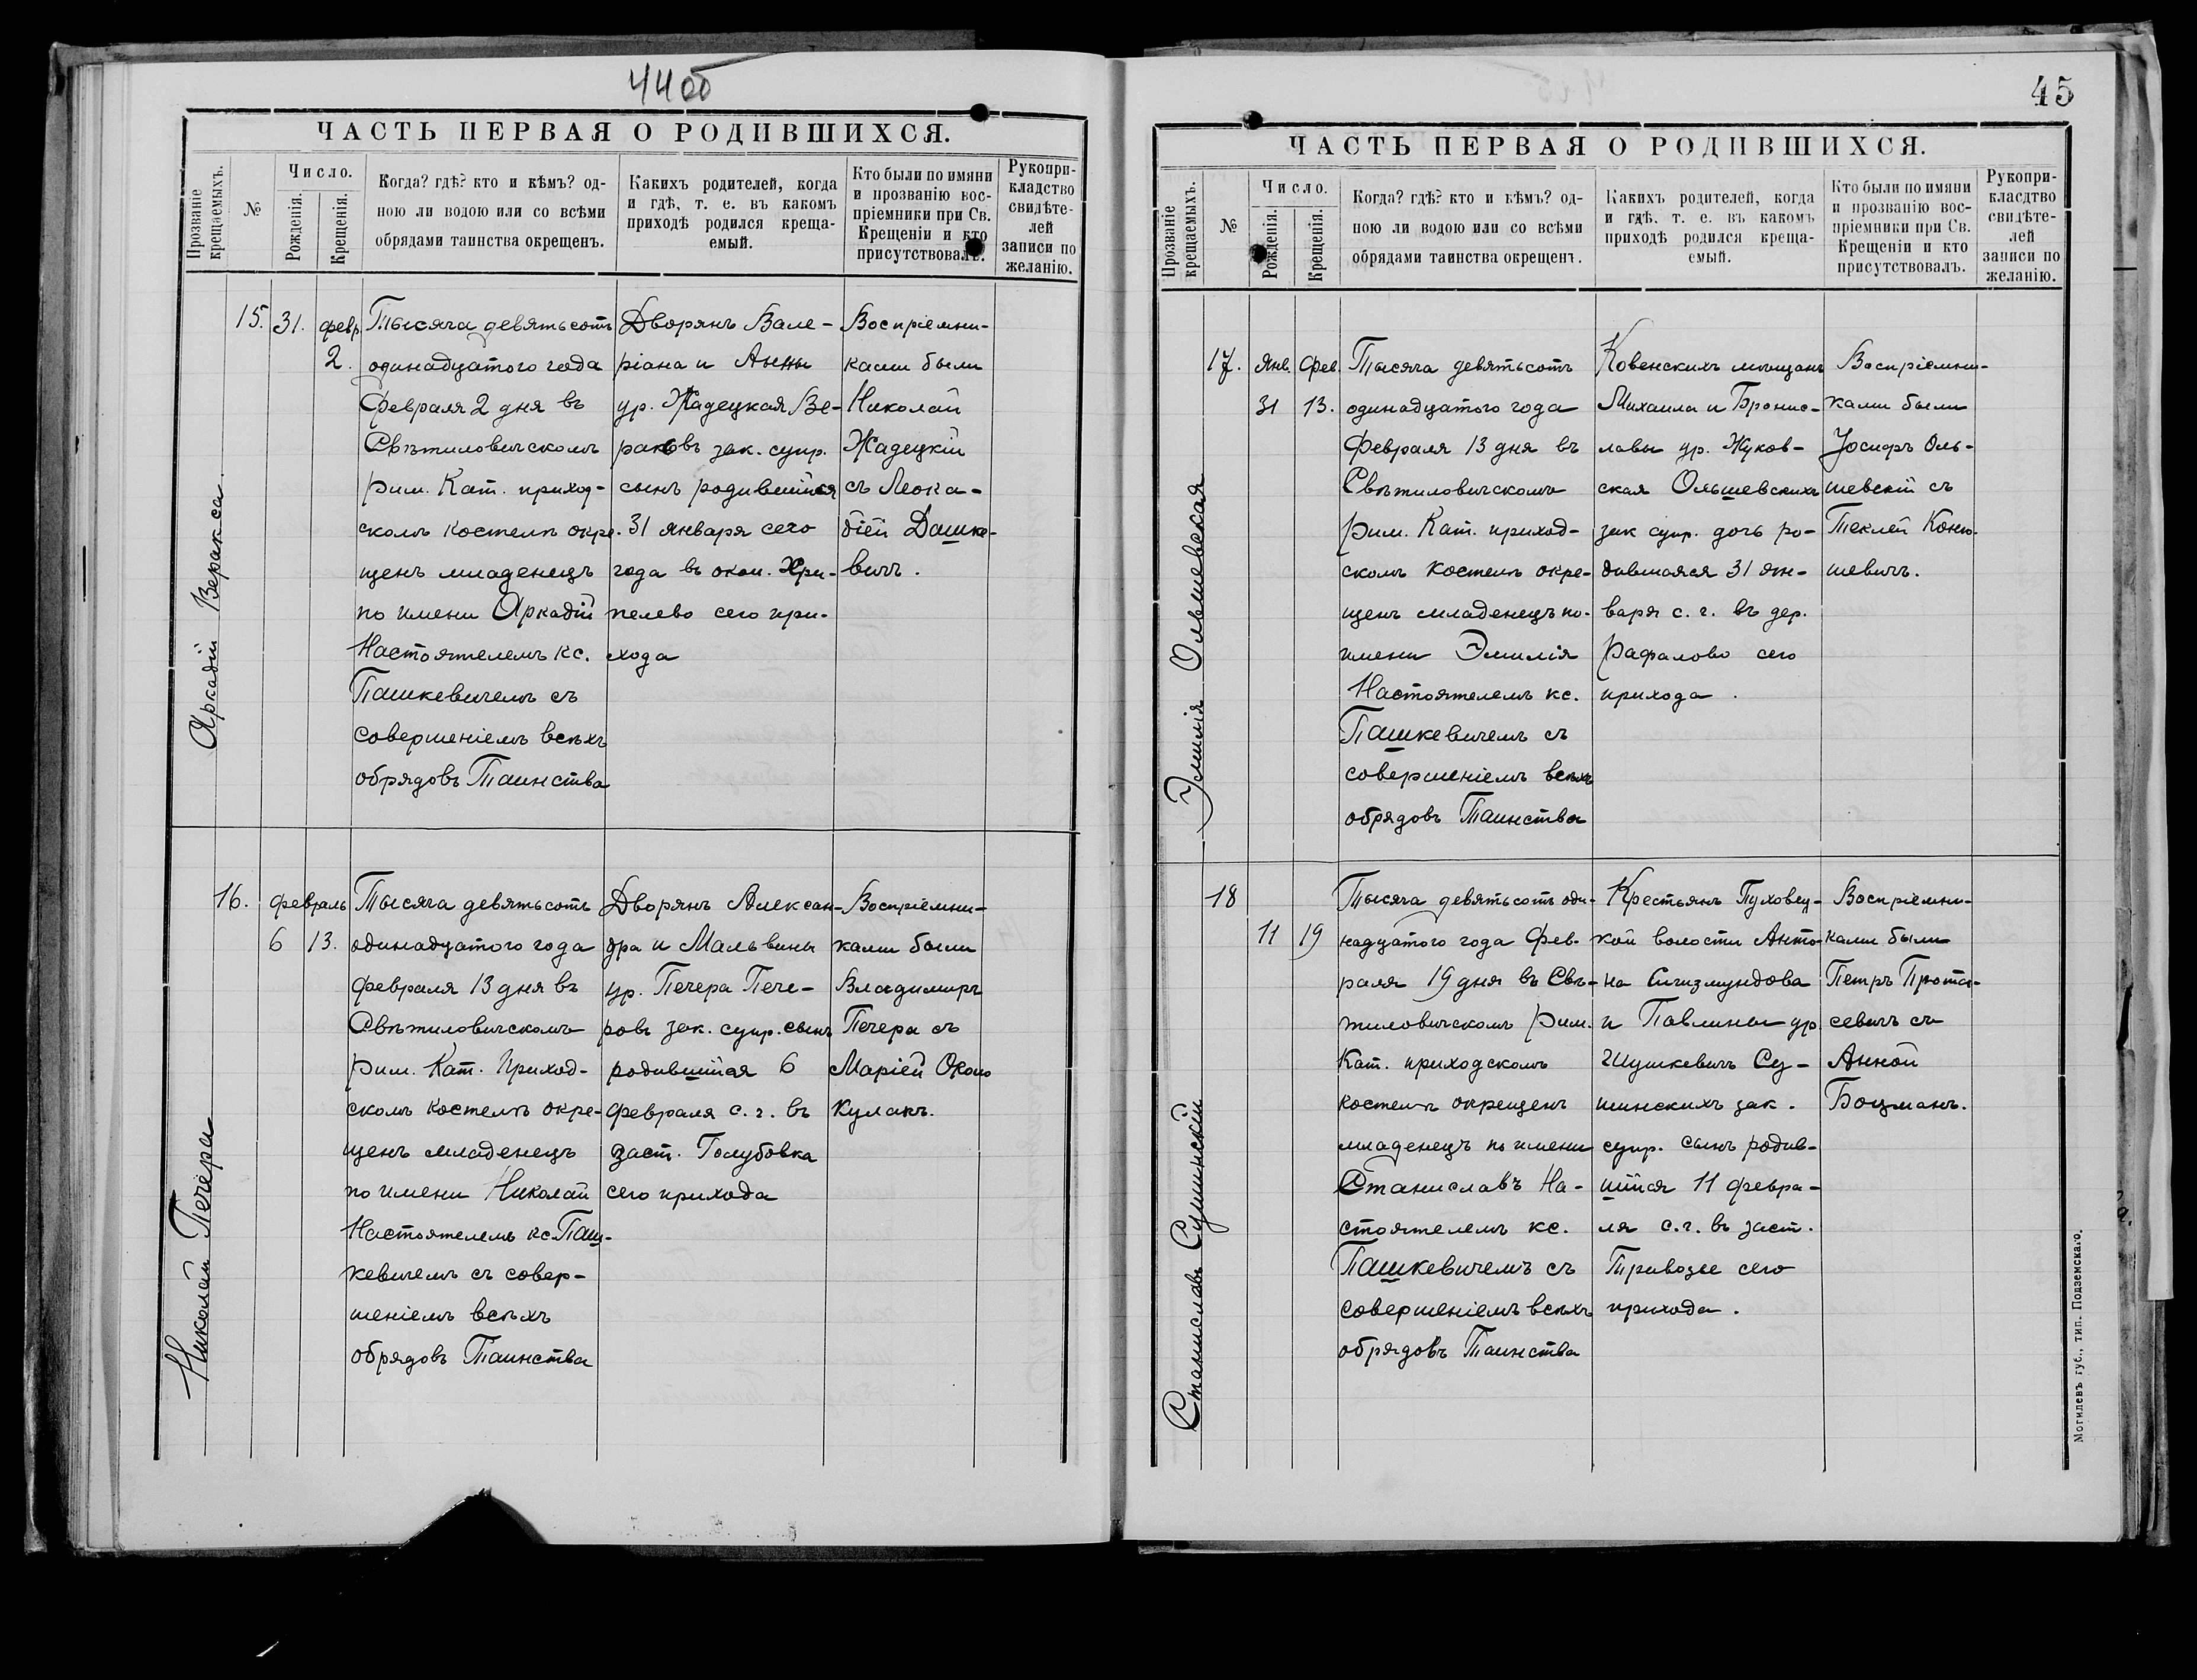 44об
ЧАСТЬ ПЕРВАЯ О РОДИВШИХСЯ.
Прозваніе крещаемыхъ.
№
Число.
Рожденія.
Крещенія.
Когда? гдѣ? кто и кѣмъ? од-
ною ли водою или со всѣми
обрядами таинства окрещенъ.
Какихъ родителей, когда
и гдѣ, т. е. въ какомъ
приходѣ родился креща-
емый.
Кто были по имяни
и прозванію вос-
пріемники при Св.
Крещеніи и кто
присутствовалъ.
Рукопри-
кладство
свидѣте-
лей
записи по
желанію.
Аркадій Веракса
15.
31.
февр.
2.
Тысяча девятьсотъ
одинадцатого года
Февраля 2 дня въ
Свѣтиловичскомъ
Рим. Кат. приход-
скомъ костелѣ окре-
щенъ младенецъ
по имени Аркадій
Настоятелемъ кс.
Пашкевичемъ съ
совершеніемъ всѣхъ
обрядовъ Таинства
Дворянъ Вале-
ріана и Анны
ур. Жадецкая Ве-
раксовъ зак. супр.
сынъ родившійся
31 января сего
года въ окол. Хри-
пелево сего при-
хода
Воспріемни-
ками были
Николай
Жадецкій
съ Леока-
діей Дашке-
вичъ.
Николай Печера
16.
февраль
6
13.
Тысяча девятьсотъ
одинадцатого года
февраля 13 дня въ
Свѣтиловичскомъ
Рим. Кат. Приход-
скомъ костелѣ окре-
щенъ младенецъ
по имени Николай
Настоятелемъ кс. Паш-
кевичемъ съ совер-
шеніемъ всѣхъ
обрядовъ Таинства
Дворянъ Алексан-
дра и Мальвины
ур. Печера Пече-
ровъ зак. супр. сынъ
родившійся 6
февраля с. г. въ
заст. Голубовка
сего прихода
Воспріемни-
ками были
Владимиръ
Печера съ
Маріей Около
Кулакъ.
45
ЧАСТЬ ПЕРВАЯ О РОДИВШИХСЯ.
Прозваніе крещаемыхъ.
№
Число.
Рожденія.
Крещенія.
Когда? гдѣ? кто и кѣмъ? од-
ною ли водою или со всѣми
обрядами таинства окрещенъ.
Какихъ родителей, когда
и гдѣ, т. е. въ какомъ
приходѣ родился креща-
емый.
Кто были по имяни
и прозванію вос-
пріемники при Св.
Крещеніи и кто
присутствовалъ.
Рукопри-
класдтво
свидѣте-
лей
записи по
желанію.
Эмилія Ольшевская
17.
Янв.
31
Фев.
13.
Тысяча девятьсотъ
одинадцатого года
Февраля 13 дня въ
Свѣтиловичскомъ
Рим. Кат. приход-
скомъ костелѣ окре-
щенъ младенецъ по-
имени Эмилія
Настоятелемъ кс.
Пашкевичемъ съ
совершеніемъ всѣхъ
обрядовъ Таинства
Ковенскихъ мѣщанъ
Михаила и Бронис-
лавы ур. Жуков-
ская Ольшевскихъ
зак супр. дочь ро-
дившаяся 31 ян-
варя с. г. въ дер.
Рафалово сего
прихода.
Воспріемни-
ками были
Іосифъ Оль-
шевскій съ
Теклей Коню-
шевичъ.
Станиславъ Сушинскій
18
11
19
Тысяча девятьсотъ оди-
надцатого года Фев-
раля 19 дня въ Свѣ-
тиловичскомъ Рим.
Кат. приходскомъ
костелѣ окрещенъ
младенецъ по имени
Станиславъ На-
стоятелемъ кс.
Пашкевичемъ съ
совершеніемъ всѣхъ
обрядовъ Таинства
Крестьянъ Пуховец-
кой волости Анто-
на Сигизмундова
и Павлины ур.
Шушкевичъ Су-
шинскихъ зак.
супр. сынъ родив-
шійся 11 февра-
ля с. г. въ заст.
Тривозее сего
прихода.
Воспріемни-
ками были
Петръ Прота-
севичъ съ
Анной
Боцманъ.
Могилевъ губ., тип. Подземскаго.